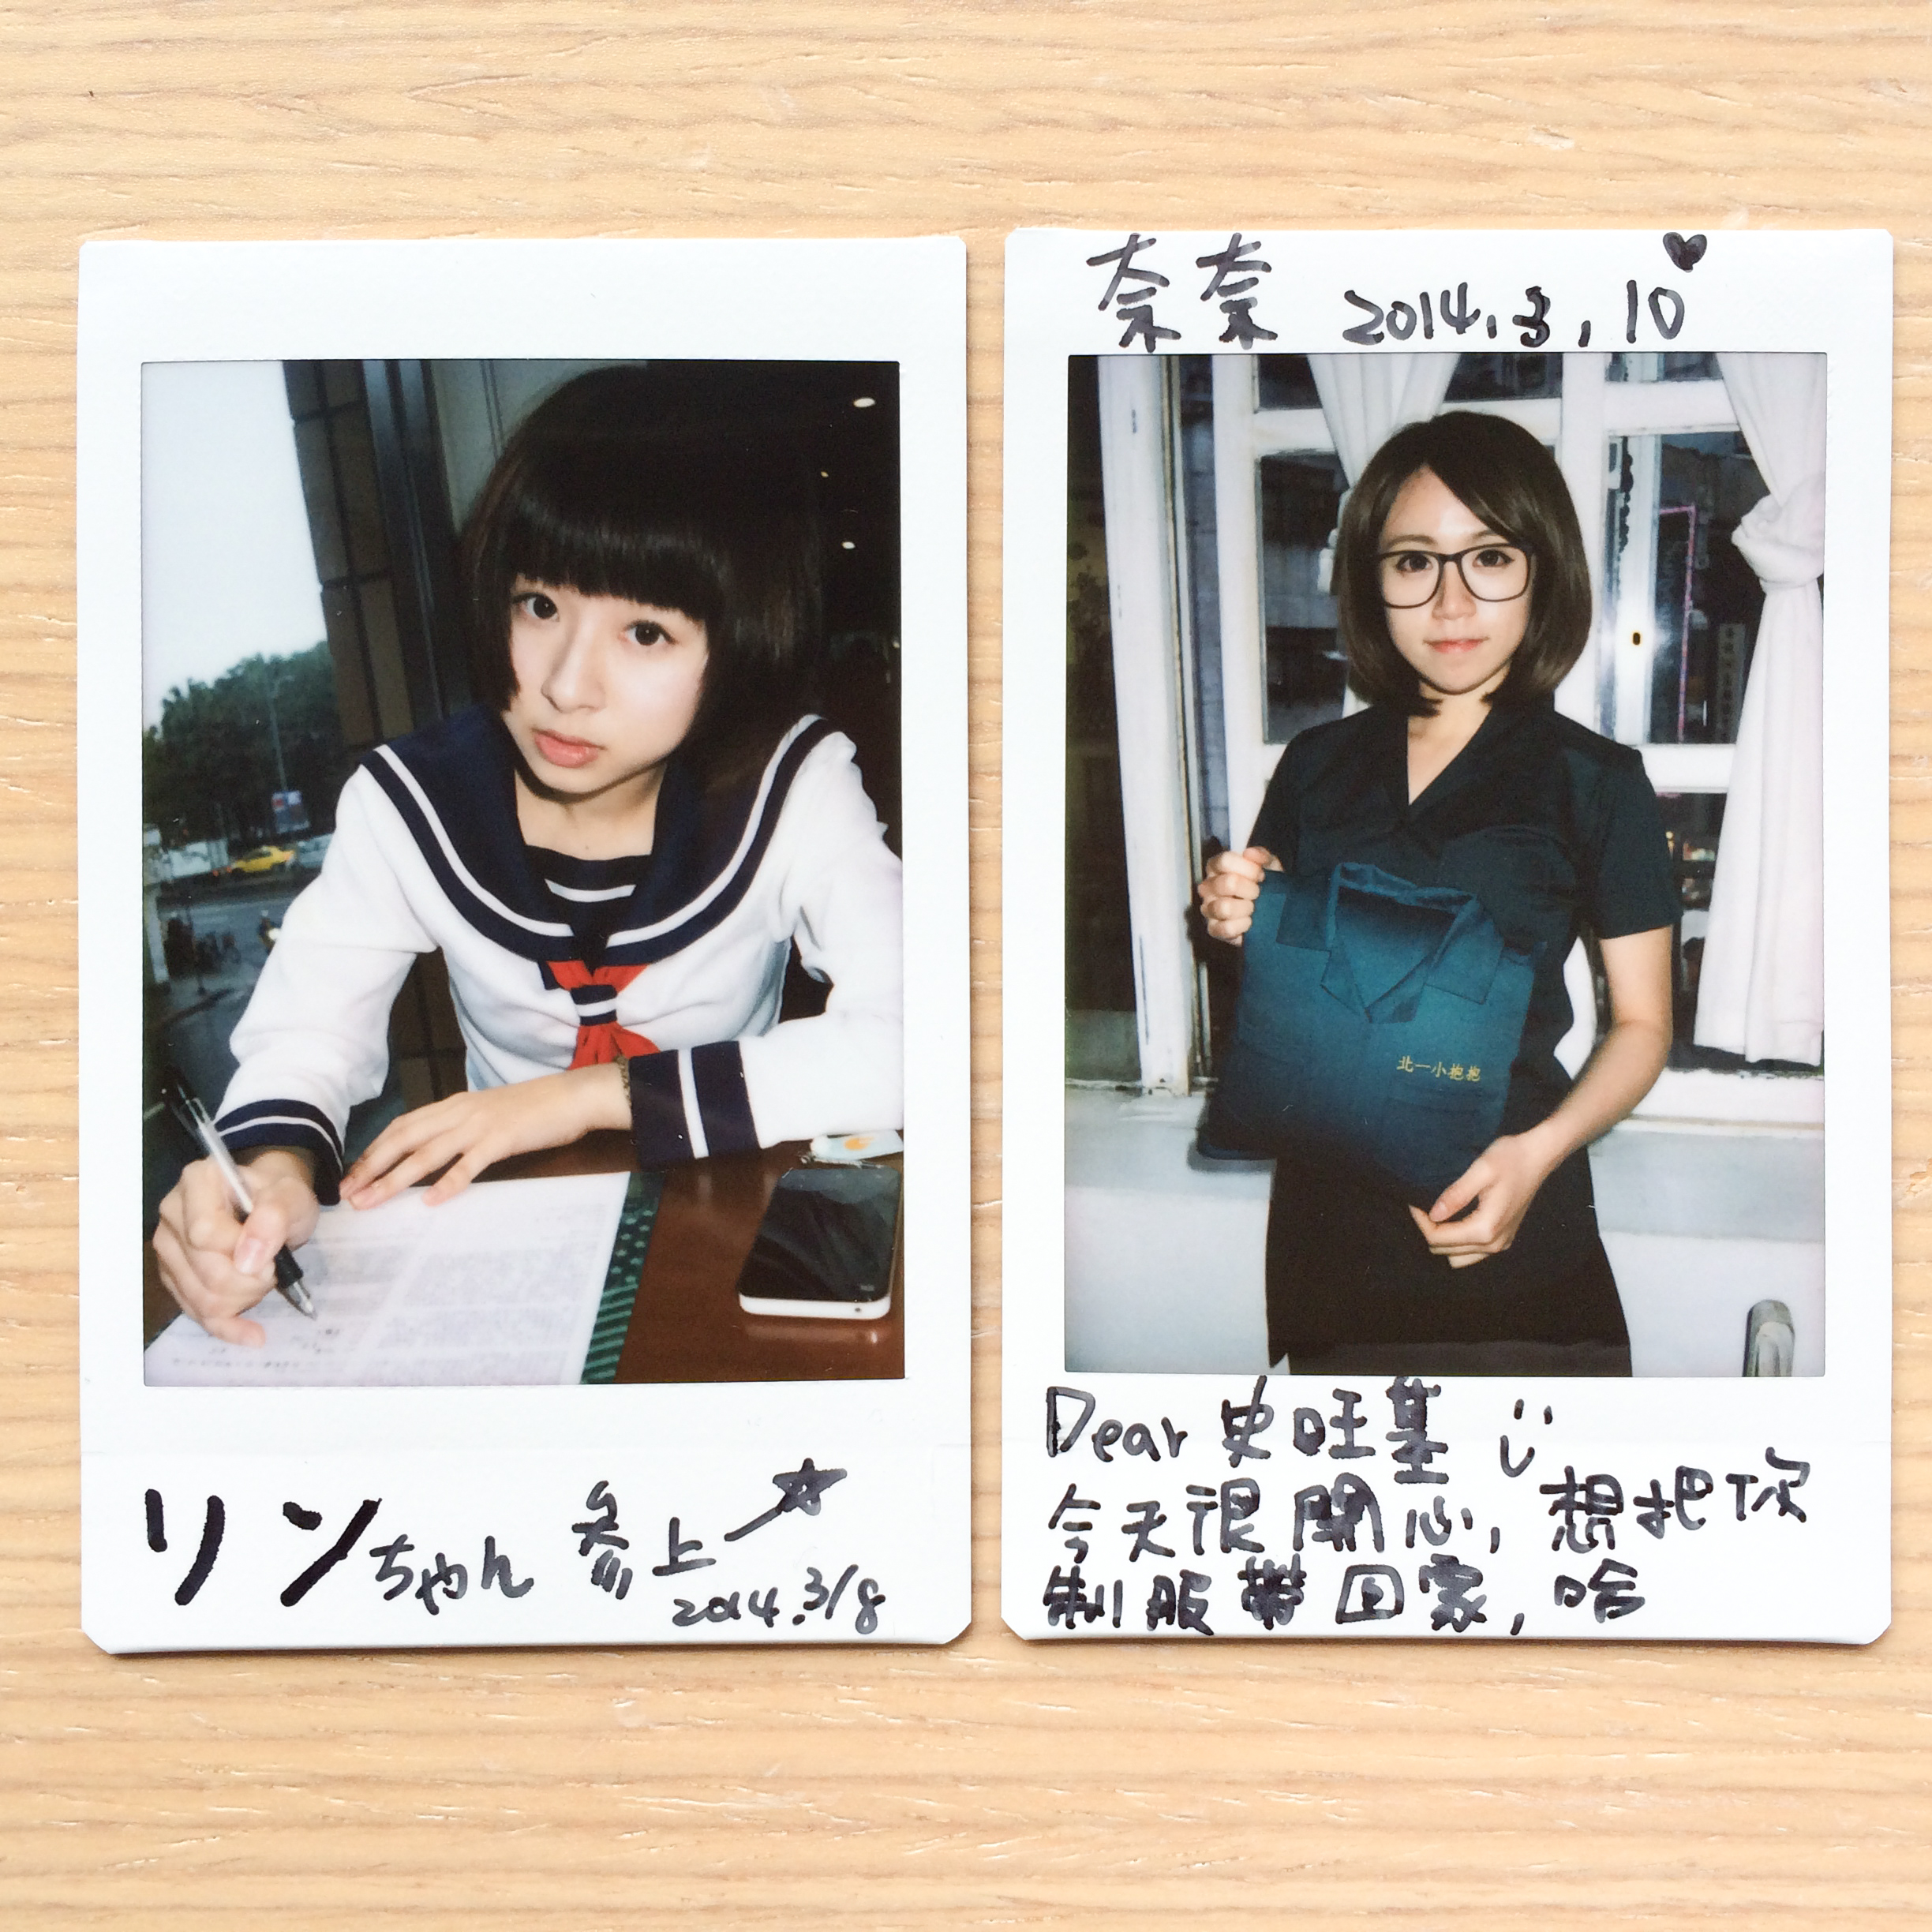 リンちゃん 参上
2014.3/8
奈奈 2014.3.10
北一小抱抱
Dear 史旺基
今天很開心, 想把你
制服帶回家, 哈